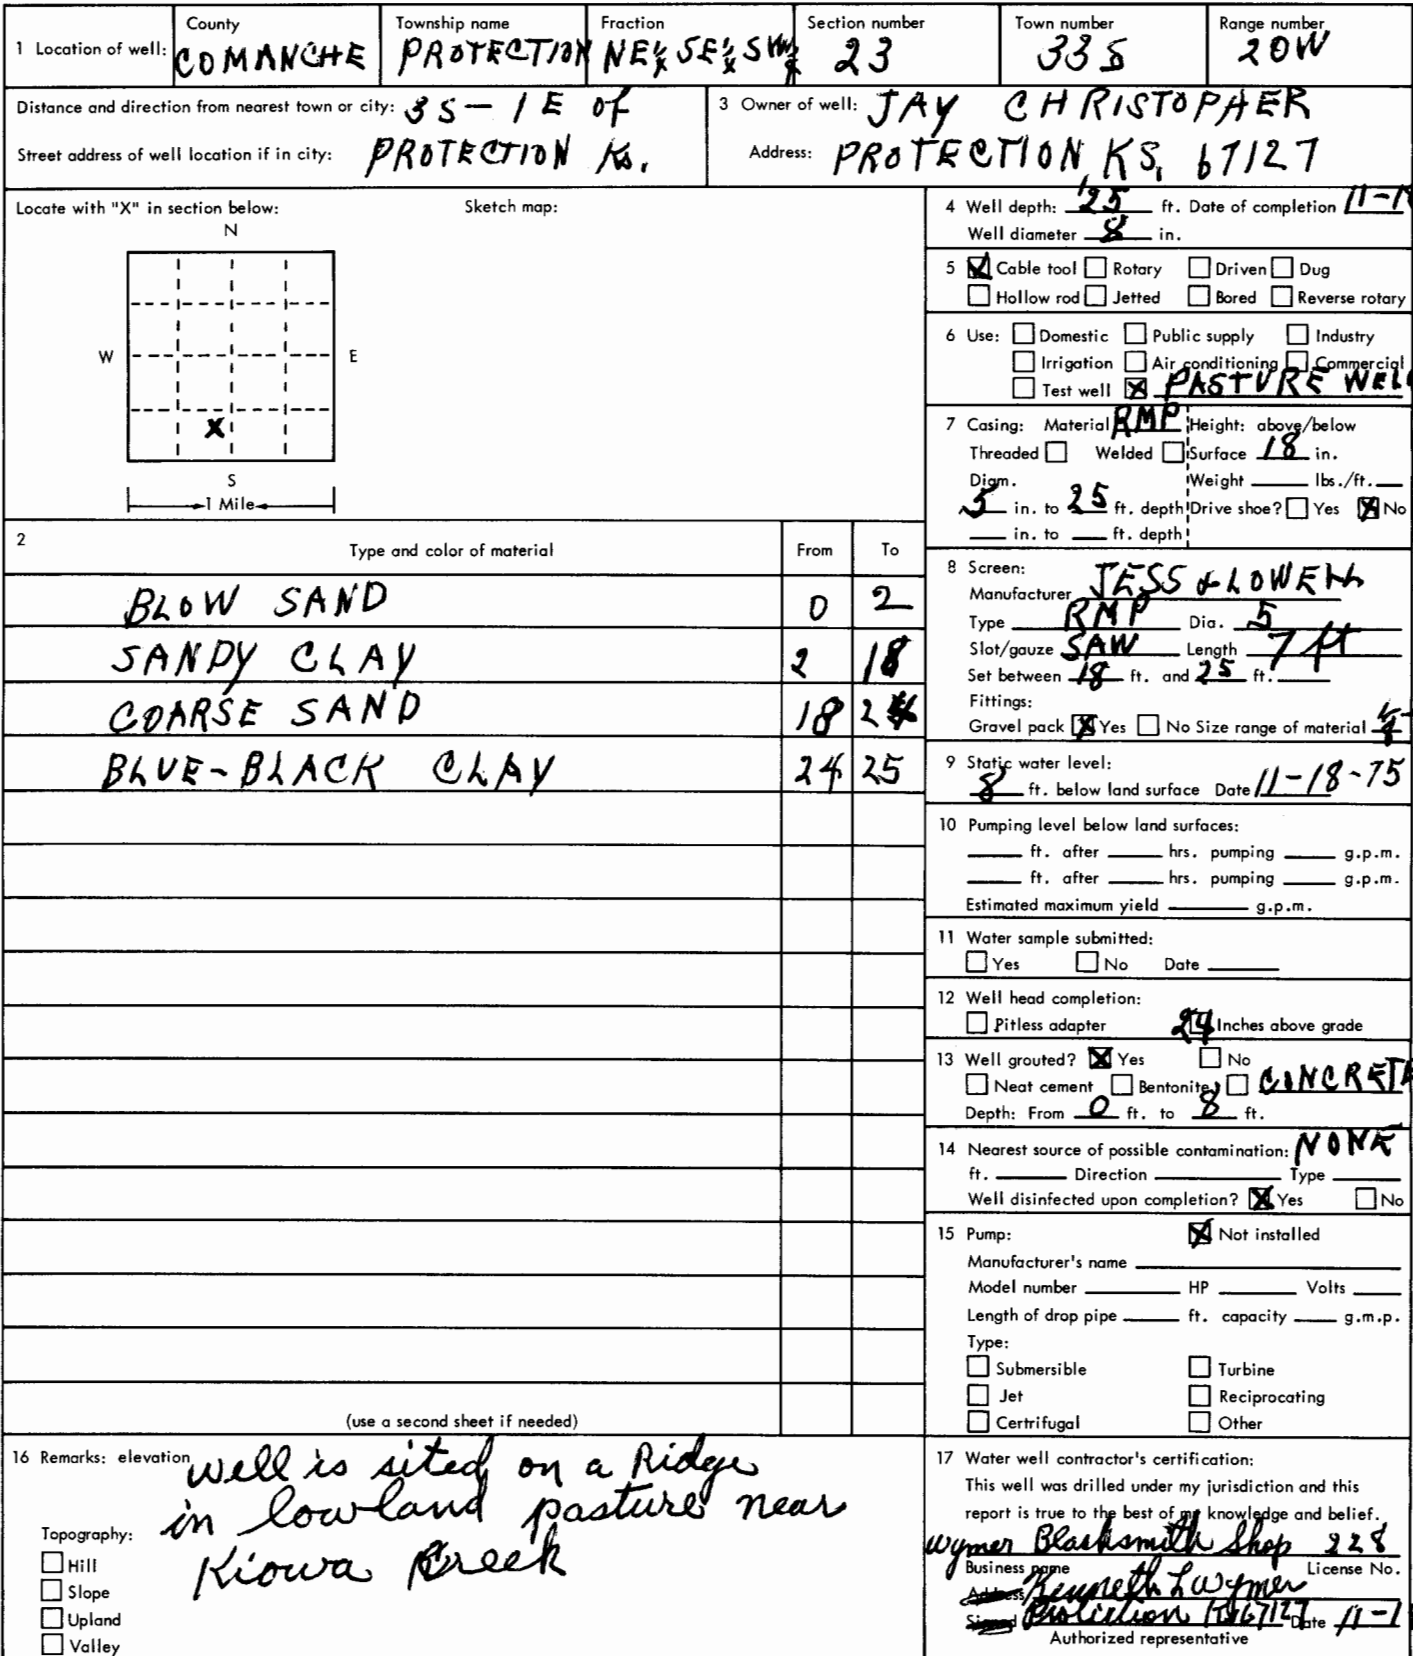 1 Location of well: County COMANCHE Township name PROTECTION Fraction NE¼ SE¼ SW¼ Section number 23 Town number 33S Range number 20W
Distance and direction from nearest town or city: 3S - 1E of
Street address of well location if in city: PROTECTION Ks.
3 Owner of well: JAY CHRISTOPHER
Address: PROTECTION, KS, 67127
Locate with "X" in section below: Sketch map:
N
W E
X
S
1 Mile
2 Type and color of material From To
BLOW SAND 0 2
SANDY CLAY 2 18
COARSE SAND 18 24
BLUE-BLACK CLAY 24 25
(use a second sheet if needed)
4 Well depth: 25 ft. Date of completion 11-1
Well diameter 8 in.
5 Cable tool Rotary Driven Dug
Hollow rod Jetted Bored Reverse rotary
6 Use: Domestic Public supply Industry
Irrigation Air conditioning Commercial
Test well X PASTURE WELL
7 Casing: Material RMP Height: above/below
Threaded Welded Surface 18 in.
Diam. Weight lbs./ft.
5 in. to 25 ft. depth Drive shoe? Yes X No
in. to ft. depth
8 Screen:
Manufacturer JESS & LOWELL
Type RMP Dia. 5
Slot/gauze SAW Length 7 ft
Set between 18 ft. and 25 ft.
Fittings:
Gravel pack X Yes No Size range of material
9 Static water level:
8 ft. below land surface Date 11-18-75
10 Pumping level below land surfaces:
ft. after hrs. pumping g.p.m.
ft. after hrs. pumping g.p.m.
Estimated maximum yield g.p.m.
11 Water sample submitted:
Yes No Date
12 Well head completion:
Pitless adapter 24 Inches above grade
13 Well grouted? X Yes No
Neat cement Bentonite CONCRETE
Depth: From 0 ft. to 8 ft.
14 Nearest source of possible contamination: NONE
ft. Direction Type
Well disinfected upon completion? X Yes No
15 Pump: X Not installed
Manufacturer's name
Model number HP Volts
Length of drop pipe ft. capacity g.m.p.
Type:
Submersible Turbine
Jet Reciprocating
Certrifugal Other
16 Remarks: elevation well is sited on a Ridge
in lowland pasture near
Kiowa Creek
Topography:
Hill
Slope
Upland
Valley
17 Water well contractor's certification:
This well was drilled under my jurisdiction and this
report is true to the best of my knowledge and belief.
Wymer Blacksmith Shop 228
Business name License No.
Address Kenneth L Wymer
Signed Protection KS 67127 Date 11-1
Authorized representative